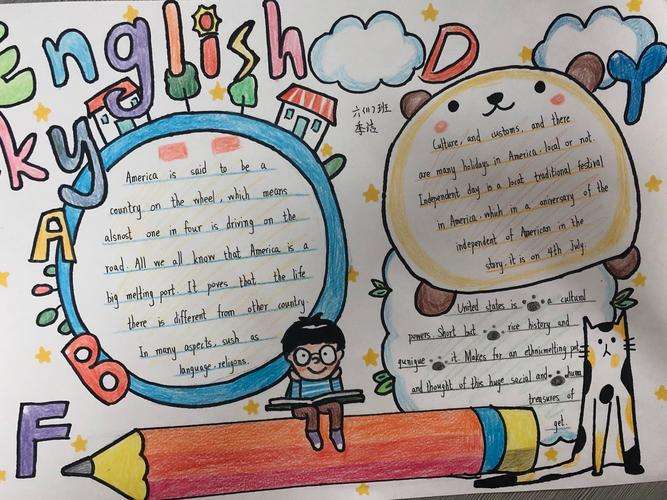 English
D
Y
ky
六(11)班
季洁
America is said to be a
country on the wheel, which means
alsnost one in four is driving on the
road. All we all know that America is a
big melting port. It poves that the life
there is different from other country.
In many aspects, sush as
language, religons.
Culture, and customs, and there
are many holidays in America, local or not.
Independent day is a locat traditional festival
in America, which in a aniversary of the
independent of American in the
story. it is on 4th July.
United states is a cultural
powers Short but rice history and
qunique it. Makes for an ethnicmelting pet
and thought of this huge social and hum
treasures of
get.
A
B
F